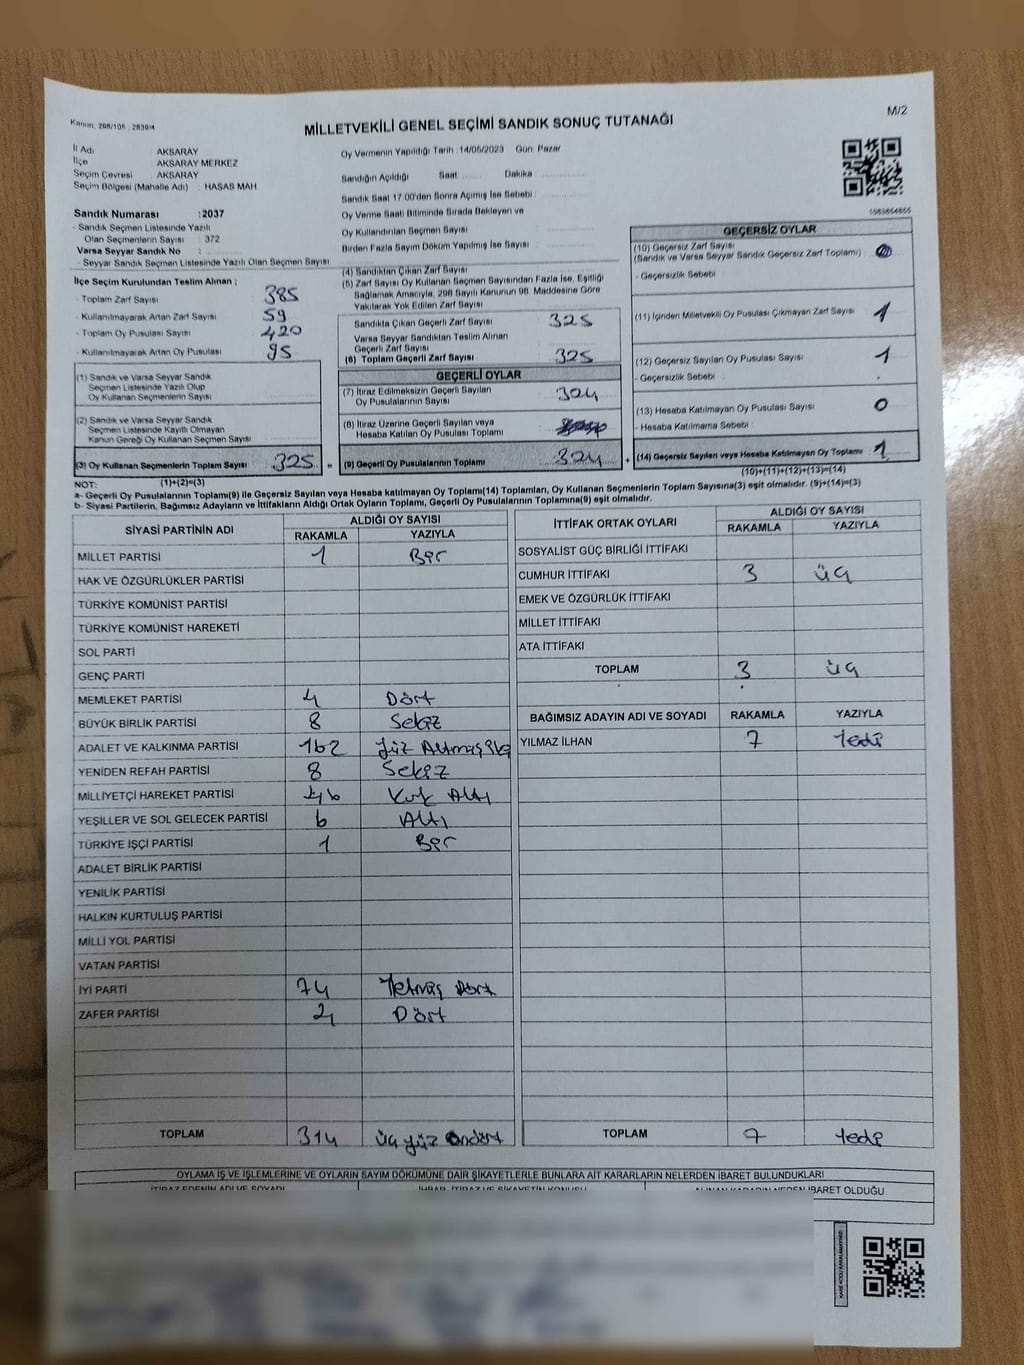 Kanun: 298/105 , 2839/4
M/2
MİLLETVEKİLİ GENEL SEÇİMİ SANDIK SONUÇ TUTANAĞI
İl Adı AKSARAY
İlçe AKSARAY MERKEZ
Seçim Çevresi : AKSARAY
Seçim Bölgesi (Mahalle Adı) : HASAS MAH
Sandık Numarası :2037
- Sandık Seçmen Listesinde Yazılı
Olan Seçmenlerin Sayısı : 372
Varsa Seyyar Sandık No :
- Seyyar Sandık Seçmen Listesinde Yazılı Olan Seçmen Sayısı
Oy Vermenin Yapıldığı Tarih :14/05/2023 Gün: Pazar
Sandığın Açıldığı Saat Dakika
Sandık Saat 17:00'den Sonra Açmış İse Sebebi :
Oy Verme Saati Bitiminde Sırada Bekleyen ve
Oy Kullandırılan Seçmen Sayısı :
Birden Fazla Sayım Döküm Yapılmış İse Sayısı :
İlçe Seçim Kurulundan Teslim Alınan :
- Toplam Zarf Sayısı 385
- Kullanılmayarak Artan Zarf Sayısı 59
- Toplam Oy Pusulası Sayısı 420
- Kullanılmayarak Artan Oy Pusulası 95
(1) Sandık ve Varsa Seyyar Sandık
Seçmen Listesinde Yazılı Olup
Oy Kullanan Seçmenlerin Sayısı
(2) Sandık ve Varsa Seyyar Sandık
Seçmen Listesinde Kayıtlı Olmayan
Kanun Gereği Oy Kullanan Seçmen Sayısı
(3) Oy Kullanan Seçmenlerin Toplam Sayısı 325 =
(1)+(2)=(3)
(4) Sandıktan Çıkan Zarf Sayısı
(5) Zarf Sayısı Oy Kullanan Seçmen Sayısından Fazla İse, Eşitliği
Sağlamak Amacıyla, 298 Sayılı Kanunun 98. Maddesine Göre
Yakılarak Yok Edilen Zarf Sayısı
Sandıkta Çıkan Geçerli Zarf Sayısı 325
Varsa Seyyar Sandıktan Teslim Alınan
Geçerli Zarf Sayısı
(6) Toplam Geçerli Zarf Sayısı 325
GEÇERLİ OYLAR
(7) İtiraz Edilmeksizin Geçerli Sayılan
Oy Pusulalarının Sayısı 324
(8) İtiraz Üzerine Geçerli Sayılan veya
Hesaba Katılan Oy Pusulası Toplamı
(9) Geçerli Oy Pusulalarının Toplamı 324 +
1063654655
GEÇERSİZ OYLAR
(10) Geçersiz Zarf Sayısı
(Sandık ve Varsa Seyyar Sandık Geçersiz Zarf Toplamı)
- Geçersizlik Sebebi
(11) İçinden Milletvekili Oy Pusulası Çıkmayan Zarf Sayısı 1
(12) Geçersiz Sayılan Oy Pusulası Sayısı 1
- Geçersizlik Sebebi
(13) Hesaba Katılmayan Oy Pusulası Sayısı 0
- Hesaba Katılmama Sebebi :
(14) Geçersiz Sayılan veya Hesaba Katılmayan Oy Toplamı : 1
(10)+(11)+(12)+(13)=(14)
NOT:
a- Geçerli Oy Pusulalarının Toplamı(9) ile Geçersiz Sayılan veya Hesaba katılmayan Oy Toplamı(14) Toplamları, Oy Kullanan Seçmenlerin Toplam Sayısına(3) eşit olmalıdır. (9)+(14)=(3)
b- Siyasi Partilerin, Bağımsız Adayların ve İttifakların Aldığı Ortak Oyların Toplamı, Geçerli Oy Pusulalarının Toplamına(9) eşit olmalıdır.
SİYASİ PARTİNİN ADI ALDIĞI OY SAYISI
RAKAMLA YAZIYLA
MİLLET PARTİSİ 1 Bir
HAK VE ÖZGÜRLÜKLER PARTİSİ
TÜRKİYE KOMÜNİST PARTİSİ
TÜRKİYE KOMÜNİST HAREKETİ
SOL PARTİ
GENÇ PARTİ
MEMLEKET PARTİSİ 4 Dört
BÜYÜK BİRLİK PARTİSİ 8 Sekiz
ADALET VE KALKINMA PARTİSİ 162 Yüz Altmış İki
YENİDEN REFAH PARTİSİ 8 Sekiz
MİLLİYETÇİ HAREKET PARTİSİ 46 Kırk Altı
YEŞİLLER VE SOL GELECEK PARTİSİ 6 Altı
TÜRKİYE İŞÇİ PARTİSİ 1 Bir
ADALET BİRLİK PARTİSİ
YENİLİK PARTİSİ
HALKIN KURTULUŞ PARTİSİ
MİLLİ YOL PARTİSİ
VATAN PARTİSİ
İYİ PARTİ 74 Yetmiş Dört
ZAFER PARTİSİ 4 Dört
TOPLAM 314 üç yüz ondört
İTTİFAK ORTAK OYLARI ALDIĞI OY SAYISI
RAKAMLA YAZIYLA
SOSYALİST GÜÇ BİRLİĞİ İTTİFAKI
CUMHUR İTTİFAKI 3 üç
EMEK VE ÖZGÜRLÜK İTTİFAKI
MİLLET İTTİFAKI
ATA İTTİFAKI
TOPLAM 3 üç
BAĞIMSIZ ADAYIN ADI VE SOYADI RAKAMLA YAZIYLA
YILMAZ İLHAN 7 Yedi
TOPLAM 7 Yedi
OYLAMA İŞ VE İŞLEMLERİNE VE OYLARIN SAYIM DÖKÜMÜNE DAİR ŞİKAYETLERLE BUNLARA AİT KARARLARIN NELERDEN İBARET BULUNDUKLARI
İTİRAZ EDENİN ADI VE SOYADI İHBAR, İTİRAZ VE ŞİKAYETİN KONUSU ALINAN KARARIN NEDEN İBARET OLDUĞU